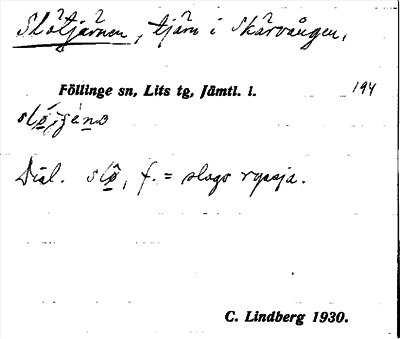 Slötjärnen, tjärn i Skärvången,
Föllinge sn, Lits tg, Jämtl. l. 194
Dial. slö, f. = slags ryssja.
C. Lindberg 1930.